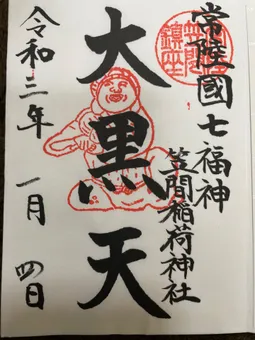 常陸國七福神
笠間稲荷神社
大黒天
令和三年 一月 四日